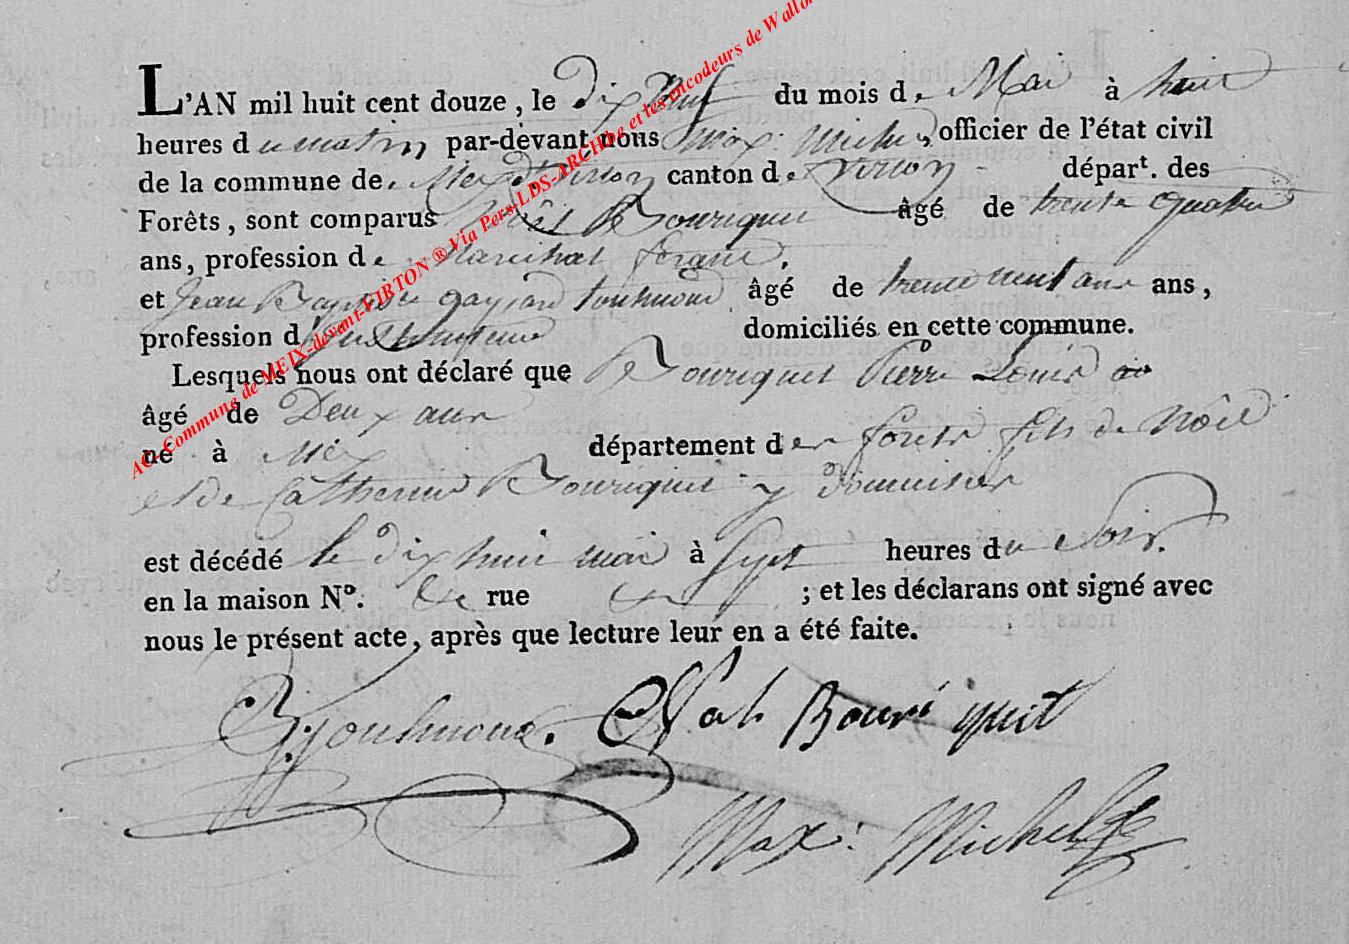 AC-Commune de MEIX-devant-VIRTON ® Via Pers-LDS-ARCHbe et les encodeurs de Wallo
L'AN mil huit cent douze, le dix neuf du mois de Mai à huit
heures du matin par-devant nous Max: Michel, officier de l'état civil
de la commune de Meix dt virton canton de virton départ. des
Forêts, sont comparus Noël Bouriquet âgé de trente quatre
ans, profession de Marechal ferant,
et Jean Baptiste âgé de trente ans ans,
profession d' domiciliés en cette commune.
Lesquels nous ont déclaré que Bouriquet Pierre Louis
âgé de Deux ans
né à Meix département des forets fils de Noël
et de Catherine Bouriquet y domicilies
est décédé le dix huit mai à sept heures du soir.
en la maison N°. rue ; et les déclarans ont signé avec
nous le présent acte, après que lecture leur en a été faite.
Noel Bouriquet
Max: Michel